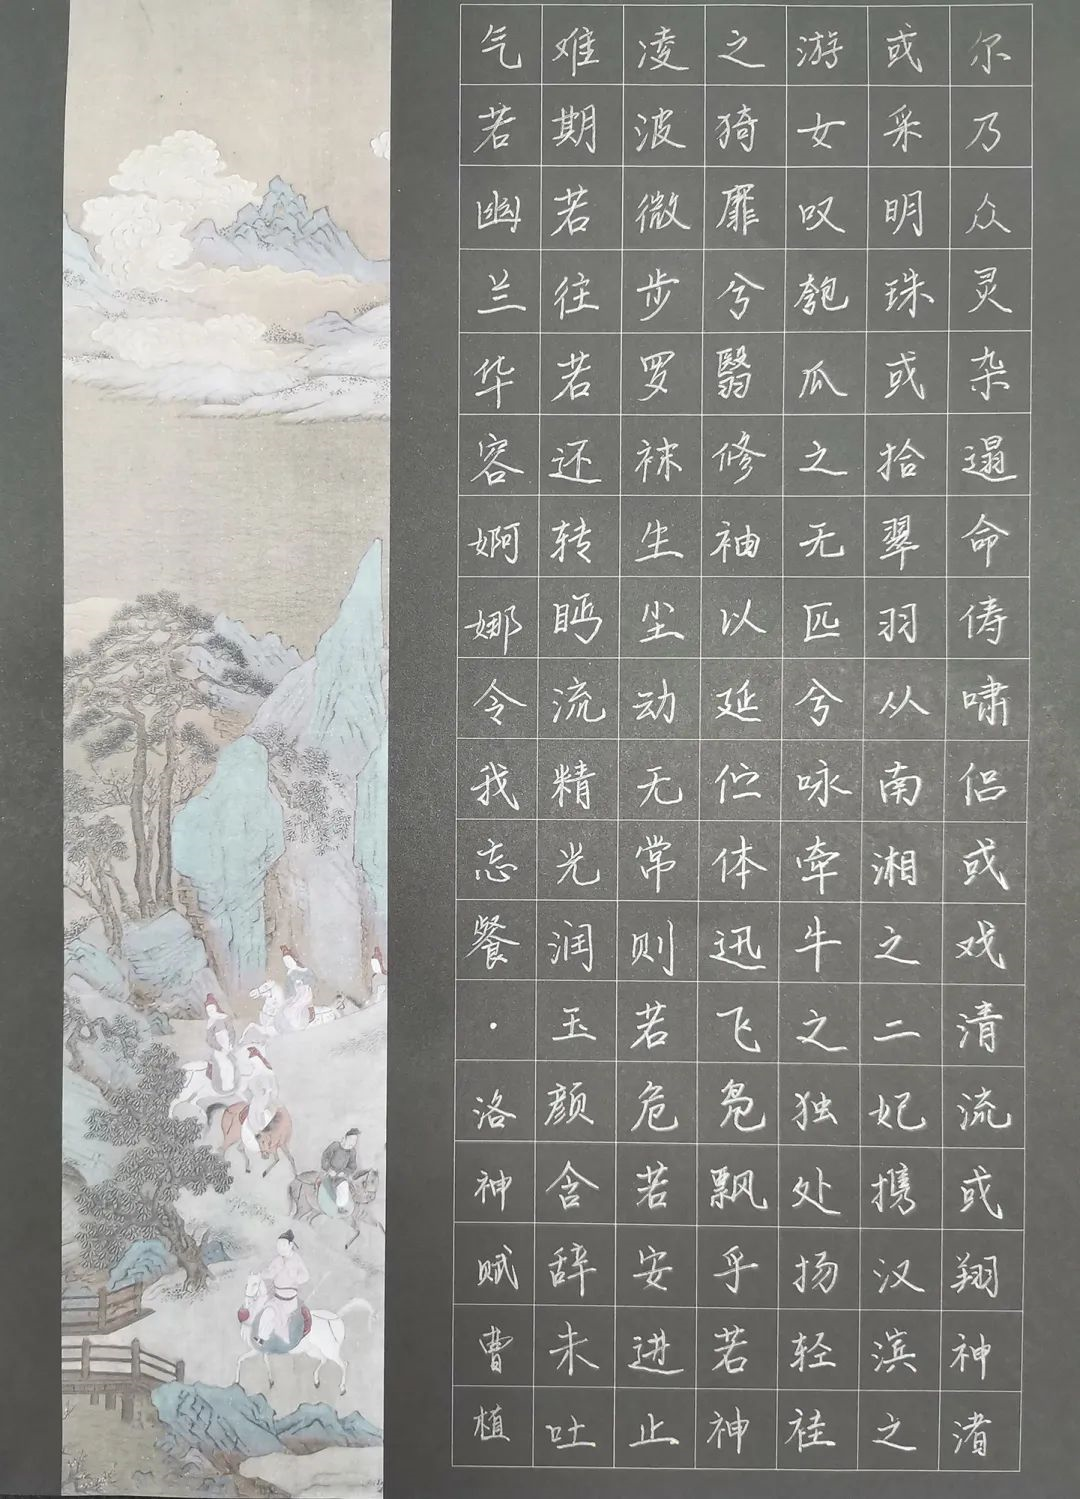 尔乃众灵杂遢命俦啸侣或戏清流或翔神渚
或采明珠或拾翠羽从南湘之二妃携汉滨之
游女叹匏瓜之无匹兮咏牵牛之独处扬轻袿
之猗靡兮翳修袖以延伫体迅飞凫飘乎若神
凌波微步罗袜生尘动无常则若危若安进止
难期若往若还转眄流精光润玉颜含辞未吐
气若幽兰华容婀娜令我忘餐·洛神赋曹植